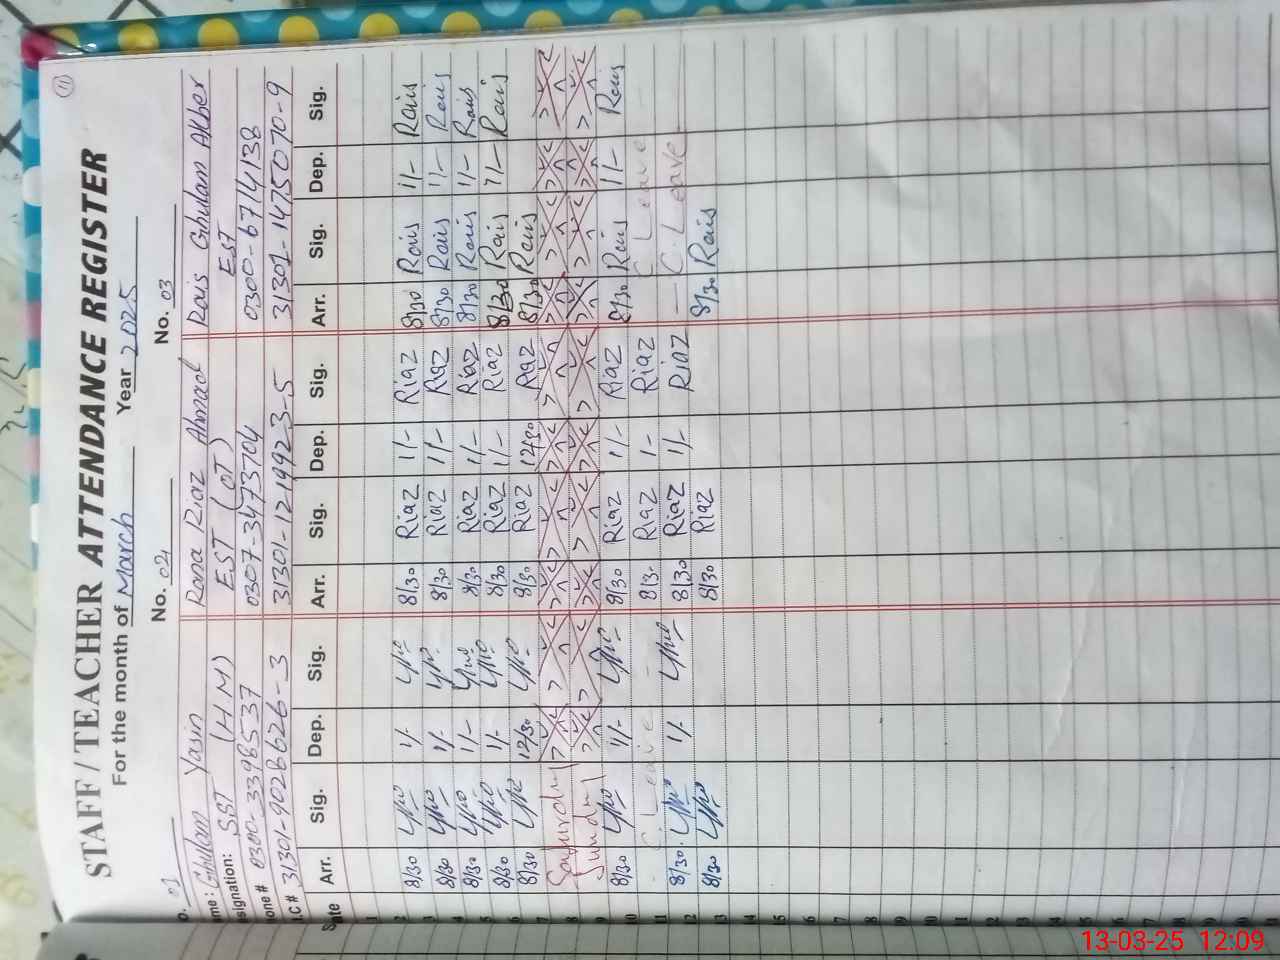 11
STAFF / TEACHER ATTENDANCE REGISTER
For the month of March Year 2025
01 No. 02 No. 03
Ghulam Yasin Rana Riaz Ahmad Rais Ghulam Akber
SST (H.M) EST (OT) EST
0300-3398537 0307-3473704 0300-6714138
31301-9026626-3 31301-1214923-5 31301-1475070-9
Arr. Sig. Dep. Sig. Arr. Sig. Dep. Sig. Arr. Sig. Dep. Sig.
1
2
3 8/30 1/- 8/30 Riaz 1/- Riaz 8/30 Rais 1/- Rais
4 8/30 1/- 8/30 Riaz 1/- Riaz 8/30 Rais 1/- Rais
5 8/30 1/- 8/30 Riaz 1/- Riaz 8/30 Rais 1/- Rais
6 8/30 1/- 8/30 Riaz 1/- Riaz 8/30 Rais 1/- Rais
7 8/30 12/30 8/30 Riaz 12/30 Riaz 8/30 Rais
8 Saturday
9 Sunday
10 8/30 1/- 8/30 Riaz 1/- Riaz 8/30 Rais 1/- Rais
11 C. Leave 8/30 Riaz 1/- Riaz C Leave
12 8/30 1/- 8/30 Riaz 1/- Riaz C. Leave
13 8/30 8/30 Riaz 8/30 Rais
13-03-25 12:09